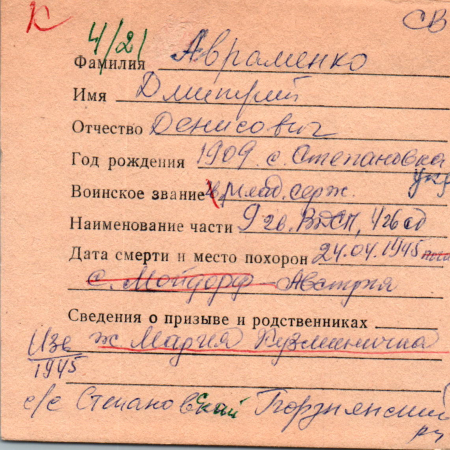 К СВ
4/21
Фамилия Авраменко
Имя Дмитрий
Отчество Денисович
Год рождения 1909 с. Степановка
укр
Воинское звание гв. млад. серж.
Наименование части 9 гв. ВДСП, 4 гв сд
Дата смерти и место похорон 24.04.1945
с. Мойдорф Австрия
Сведения о призыве и родственниках
Изв ж Мария Кузьминична
1945
с/с Степановский